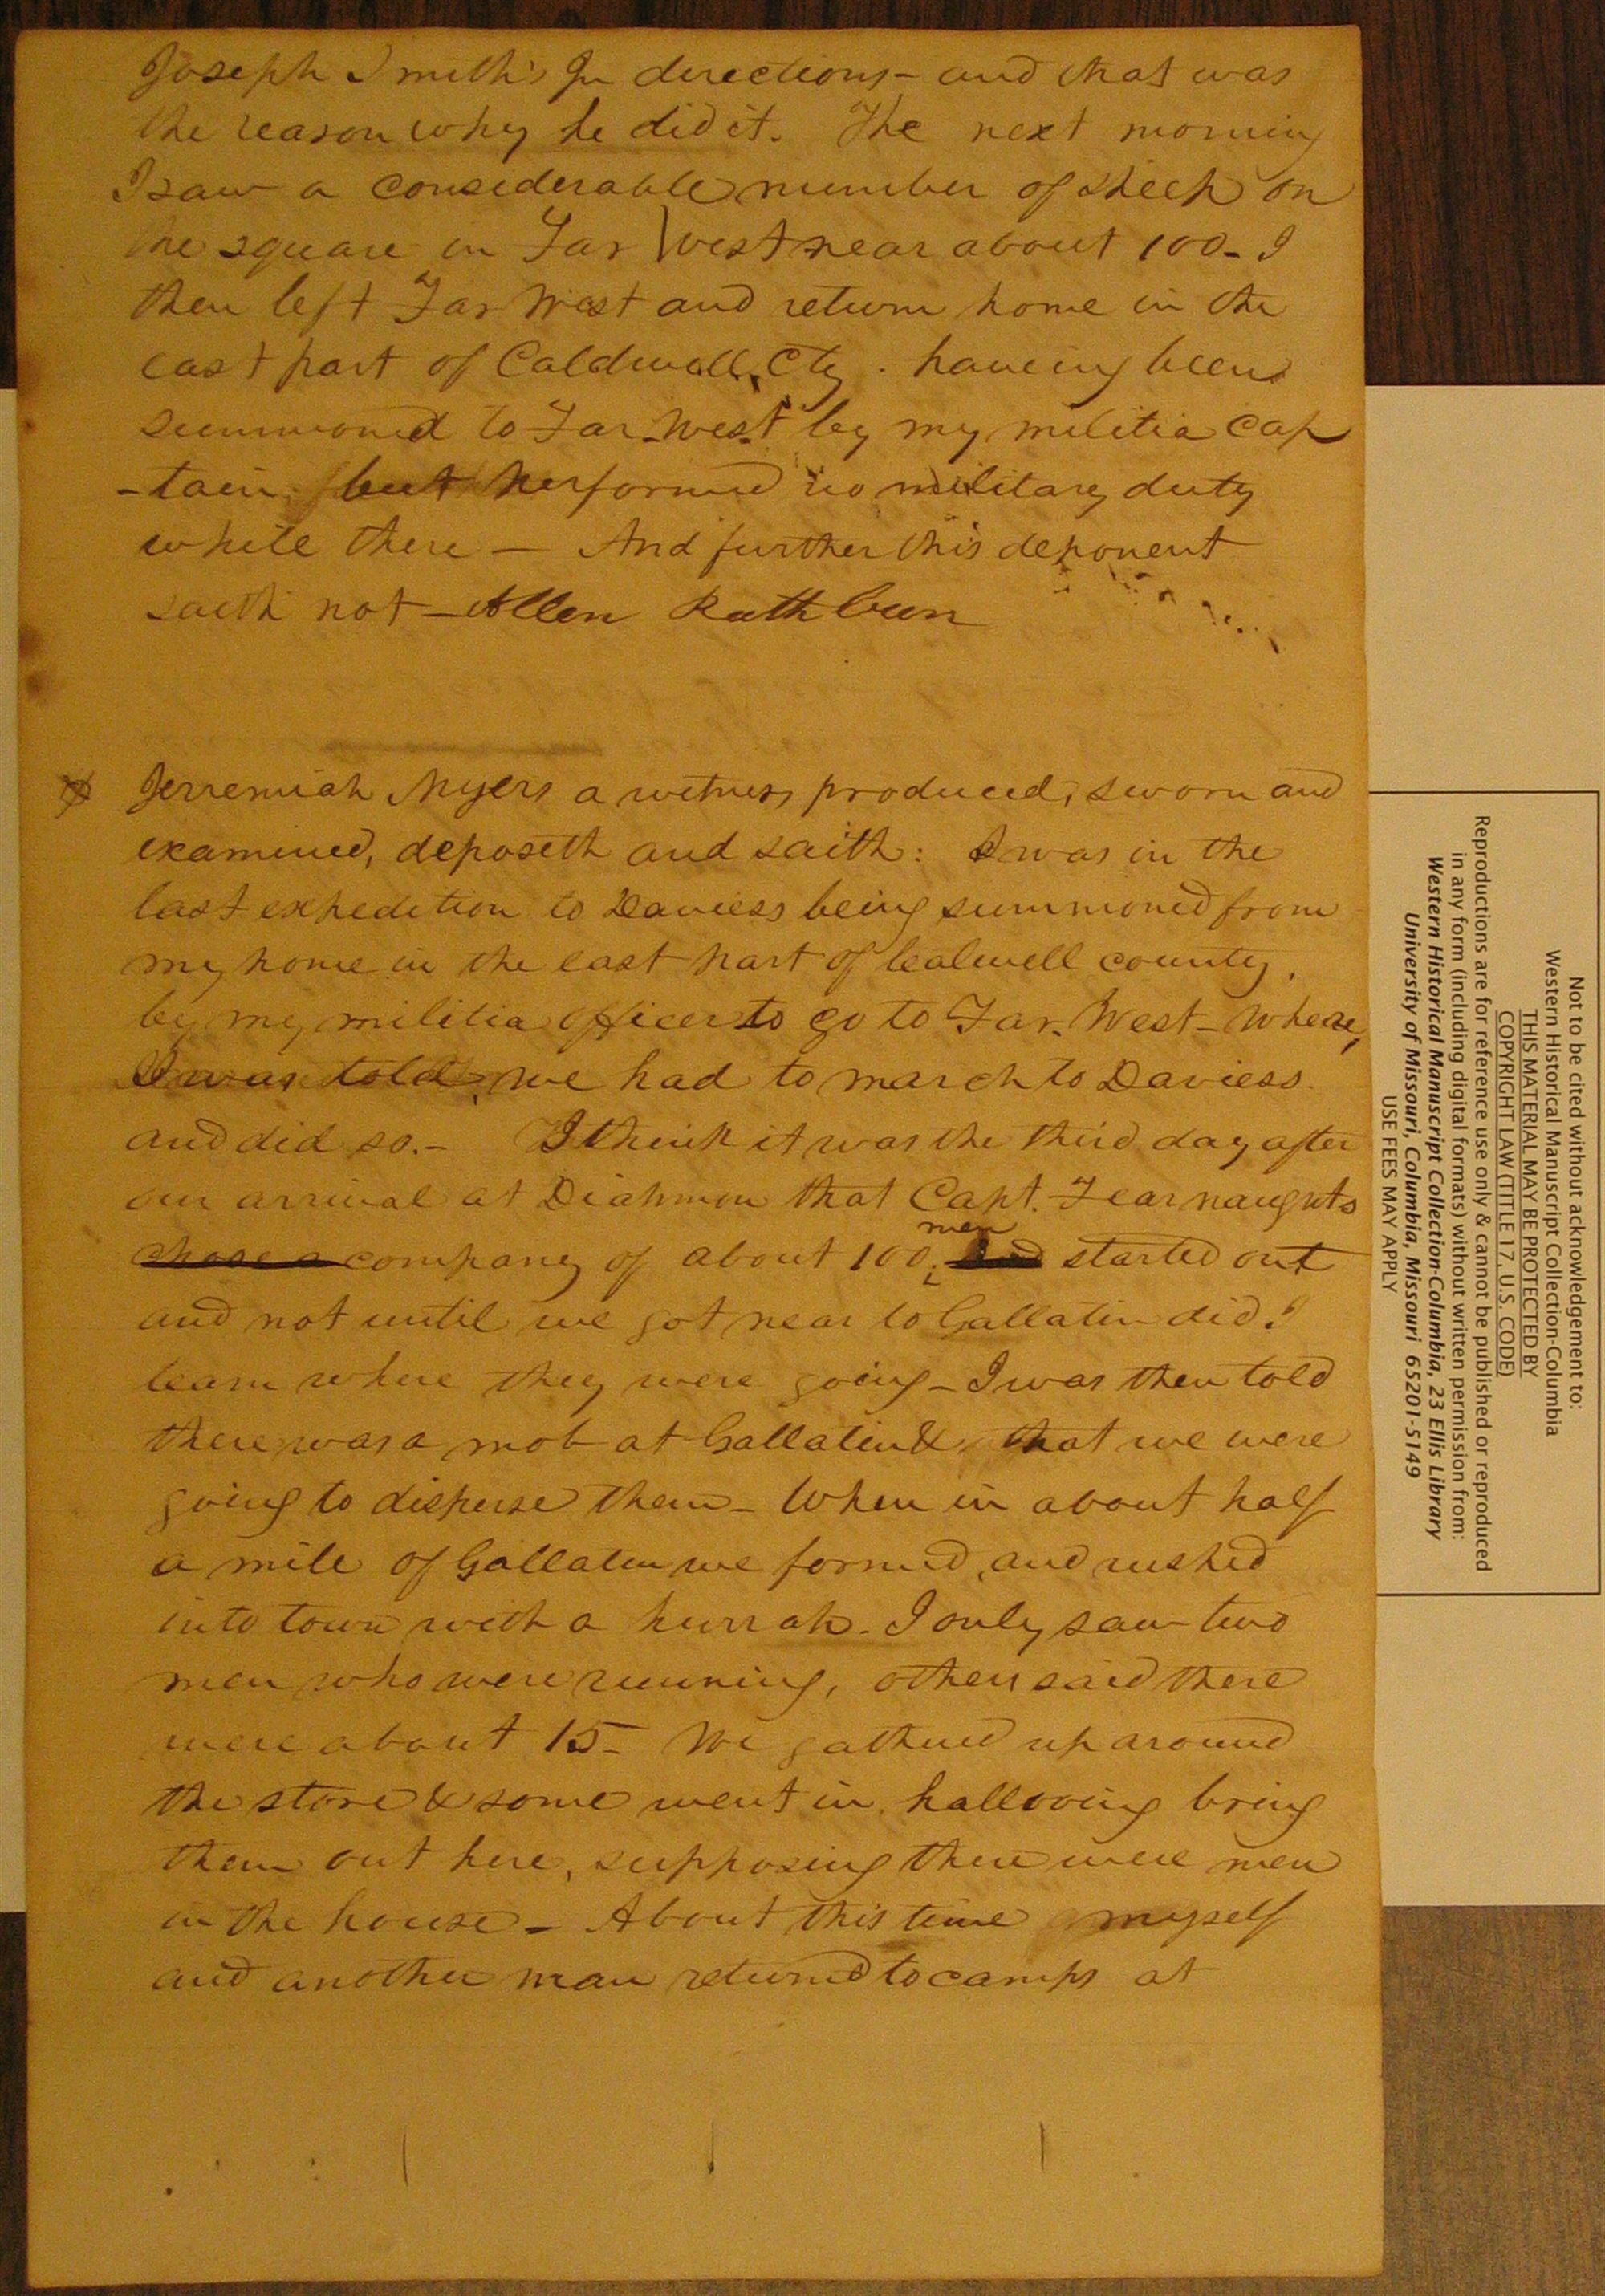 Joseph Smith's Jn directions - and that was
the reason why he did it. The next morning
I saw a considerable number of sheep on
the square in Far West near about 100 - I
then left Far West and return home in the
east part of Caldwell Cty. haveing been
summoned to Far-West by my militia cap
-tain but performed no military duty
while there — And further this deponent
saith not - Allen Rathbun
Jerremiah Myers a witness produced, sworn and
examined, deposeth and saith: I was in the
last expedition to Daviess being summoned from
my home in the east part of Calwell county,
by my militia officer to go to Far. West - where,
I was told, we had to march to Daviess
and did so. - I think it was the third day after
our arrival at Diahmon that Capt. Fearnaughts
men
chose a company of about 100, started out
and not until we got near to Gallatin did I
learn where they were going - I was then told
there was a mob at Gallatin & that we were
going to disperse them - When in about half
a mile of Gallatin we formed, and rushed
into town with a hurrah. I only saw two
men who were running, others said there
were about 15 - We gathered up around
the store & some went in, hallooing bring
them out here, supposing there were men
in the house - About this time myself
and another man returned to camps at
Not to be cited without acknowledgement to:
Western Historical Manuscript Collection-Columbia
THIS MATERIAL MAY BE PROTECTED BY
COPYRIGHT LAW (TITLE 17, U.S. CODE)
Reproductions are for reference use only & cannot be published or reproduced
in any form (including digital formats) without written permission from:
Western Historical Manuscript Collection-Columbia, 23 Ellis Library
University of Missouri, Columbia, Missouri 65201-5149
USE FEES MAY APPLY